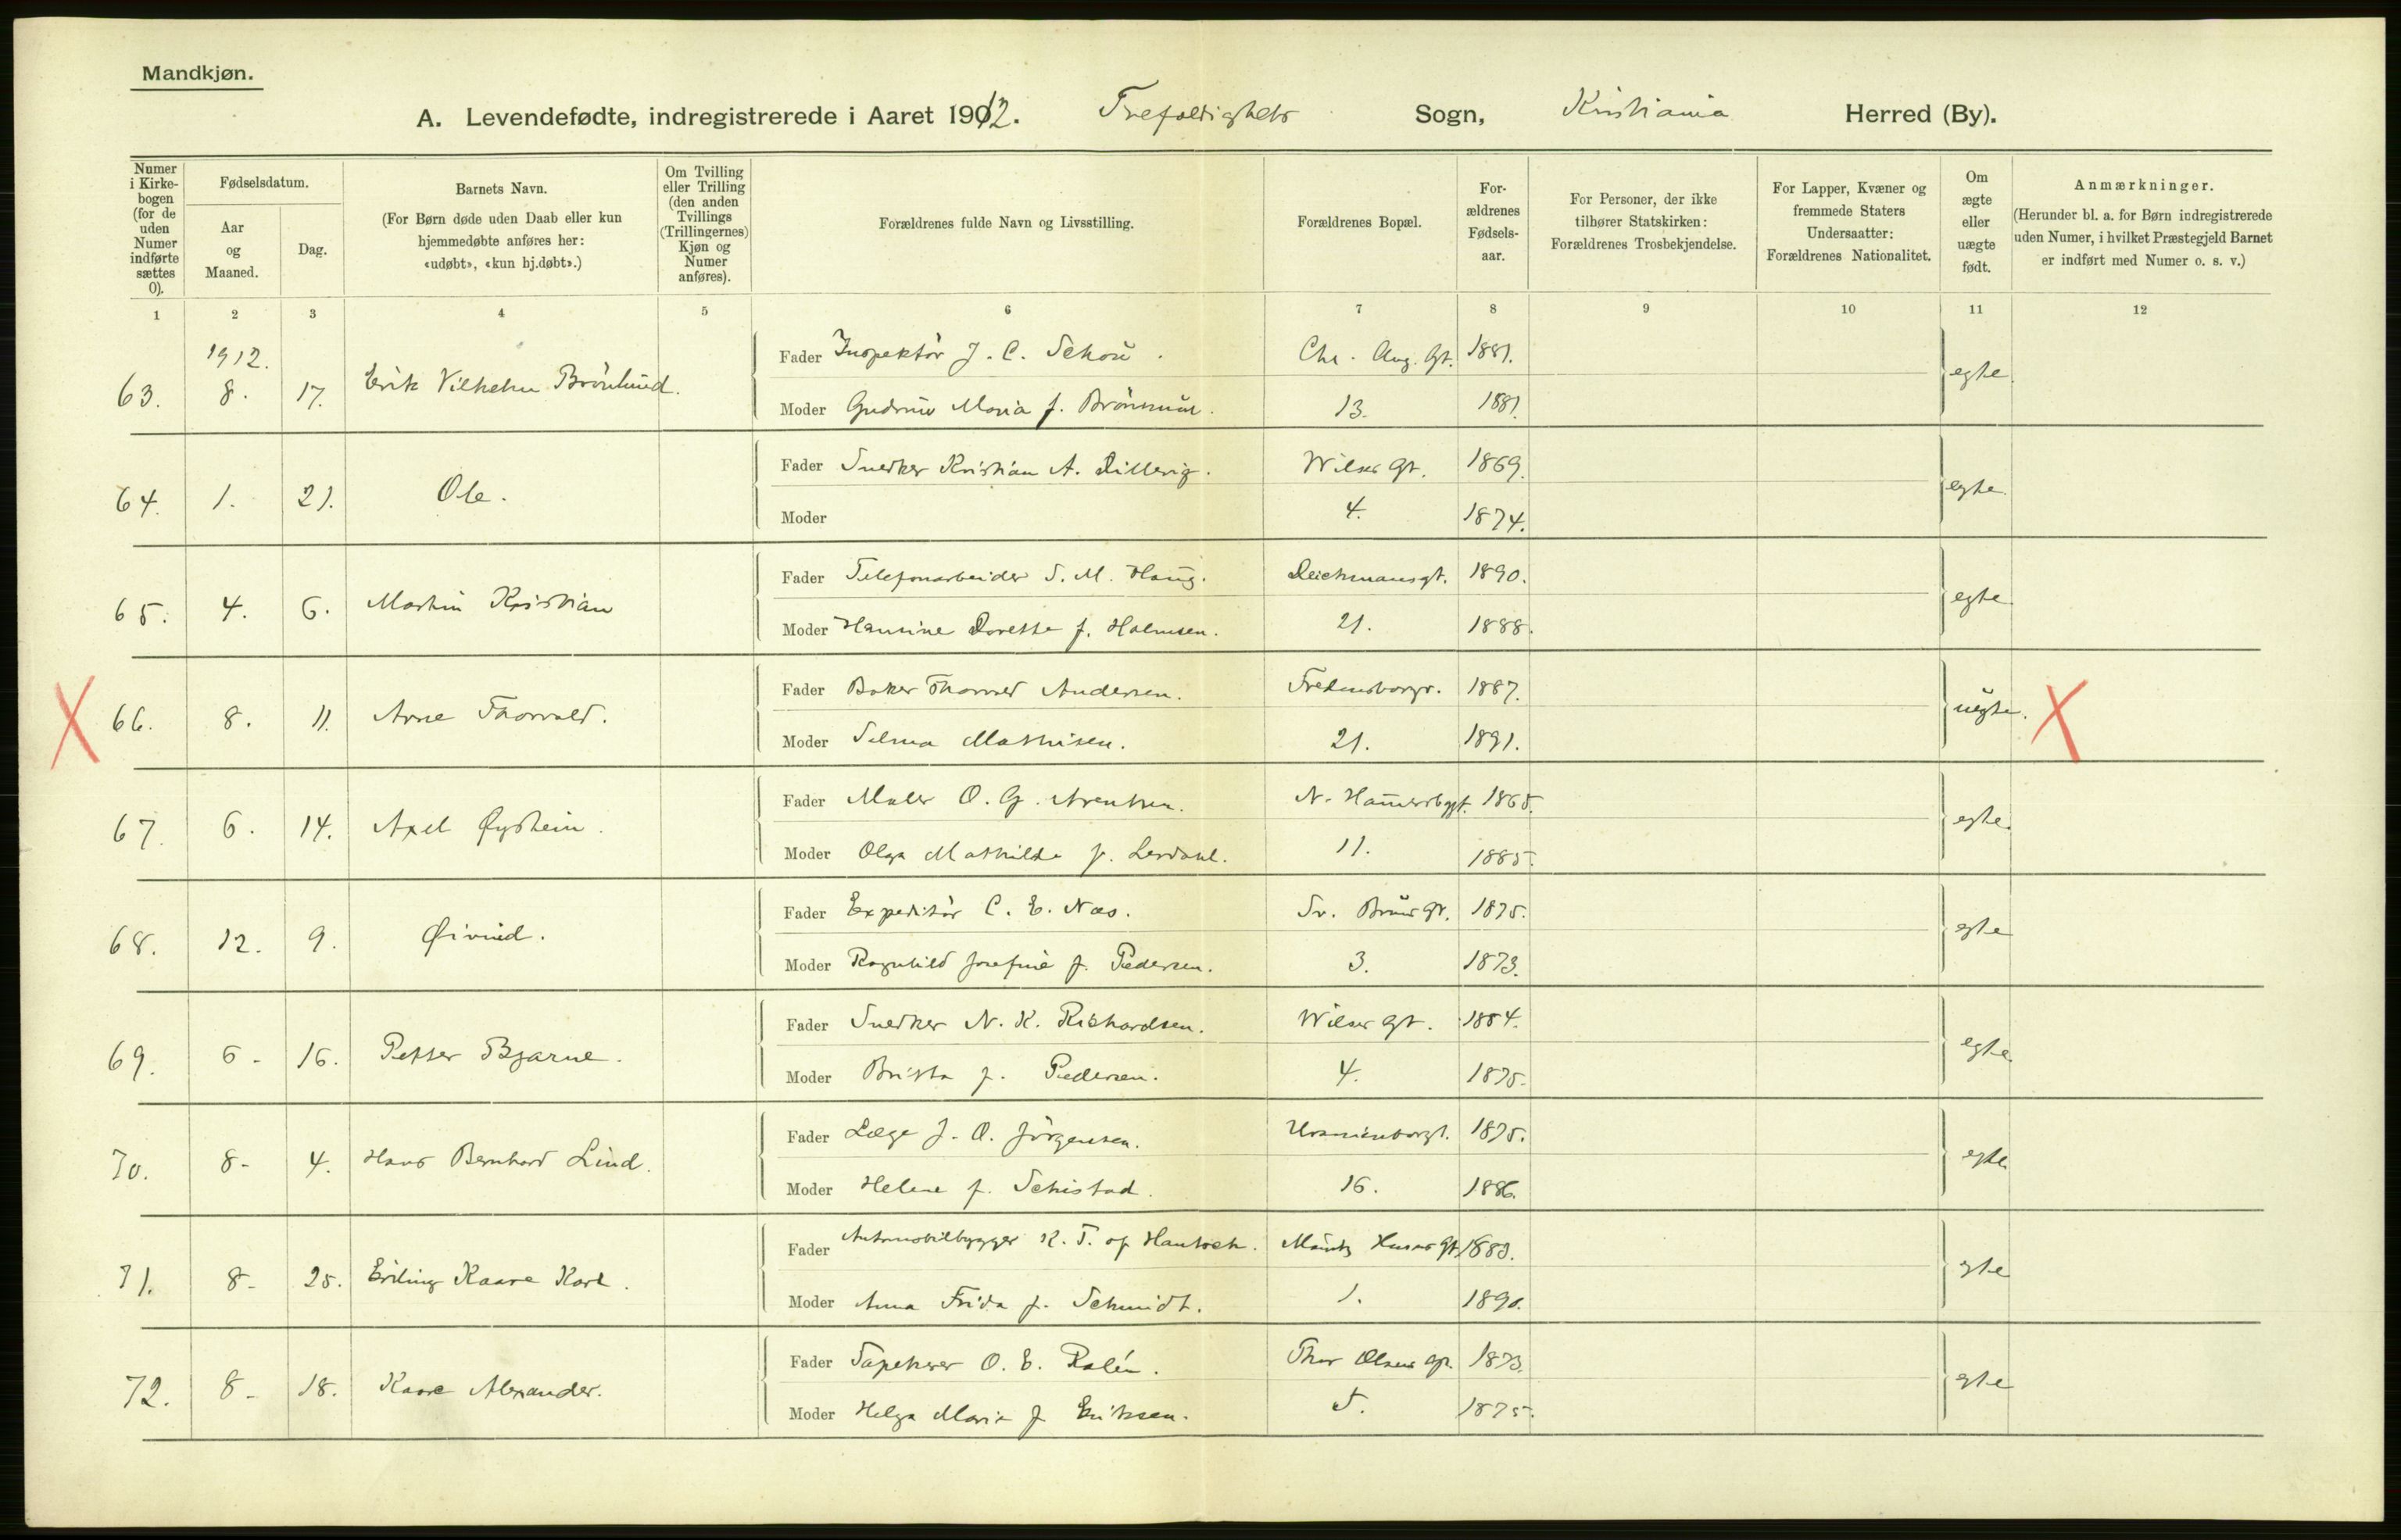 Mandkjøn.
A. Levendefødte, indregistrerede i Aaret 1912. Trefoldigheds Sogn, Kristiania Herred (By).
Numer i Kirkebogen (for de uden Numer indførte sættes 0).
Fødselsdatum.
Aar og Maaned.
Dag.
Barnets Navn.
(For Børn døde uden Daab eller kun hjemmedøbte anføres her: «udøbt», «kun hj.døbt».)
Om Tvilling eller Trilling (den anden Tvillings (Trillingernes) Kjøn og Numer anføres).
Forældrenes fulde Navn og Livsstilling.
Forældrenes Bopæl.
Forældrenes Fødselsaar.
For Personer, der ikke tilhører Statskirken: Forældrenes Trosbekjendelse.
For Lapper, Kvæner og fremmede Staters Undersaatter: Forældrenes Nationalitet.
Om ægte eller uægte født.
Anmærkninger.
(Herunder bl. a. for Børn indregistrerede uden Numer, i hvilket Præstegjeld Barnet er indført med Numer o. s. v.)
1 2 3 4 5 6 7 8 9 10 11 12
1912.
Fader Inspektör J. C. Schou. Chr. Aug. Gt. 1881.
63. 8. 17. Erik Vilhelm Brönlund. egte.
Moder Gudrun Maria f. 13. 1881.
Fader Snedker Kristian A. Dillevig. Wilses Gt. 1869.
64. 1. 21. Ole. egte.
Moder 4. 1874.
Fader Telefonarbeider S. M. Haug. Deichmansgt. 1890.
65. 4. 6. Martin Kristian egte.
Moder Hansine Dorethe f. Holmsen. 21. 1888.
Fader Baker Thorvald Andersen. Fredensborgv. 1887.
X 66. 8. 11. Arne Thorvald. uegte. X
Moder Selma Mathisen. 21. 1891.
Fader Maler O. G. Arentsen. N. Hammersbggt. 1865.
67. 6. 14. Axel Øystein. egte.
Moder Olga Mathilde f. Lerdahl. 11. 1885.
Fader Expeditör C. E. Næs. Sv. Bruns Gt. 1875.
68. 12. 9. Øivind. egte
Moder Ragnhild Josefine f. Pedersen. 3. 1873.
Fader Snedker N. K. Rishardsen. Wilses Gt. 1884.
69. 6. 16. Petter Bjarne. egte.
Moder Britta f. Pedersen. 4. 1875.
Fader Læge J. A. Jörgensen. Uranienborgt. 1875.
70. 8. 4. Hans Bernhard Lind. egte
Moder Helene f. Schistad. 16. 1886.
Fader Automobilbygger K. T. af Hantsch. 1883.
71. 8. 25. Erling Kaare Karl. egte
Moder Anna Frida f. Schmidt. 1. 1890.
Fader Tapetserer O. E. Thor Olsens Gt. 1873.
72. 8. 18. Kaare Alexander. egte
Moder Helga Marie f. Eriksen. 5. 1875.